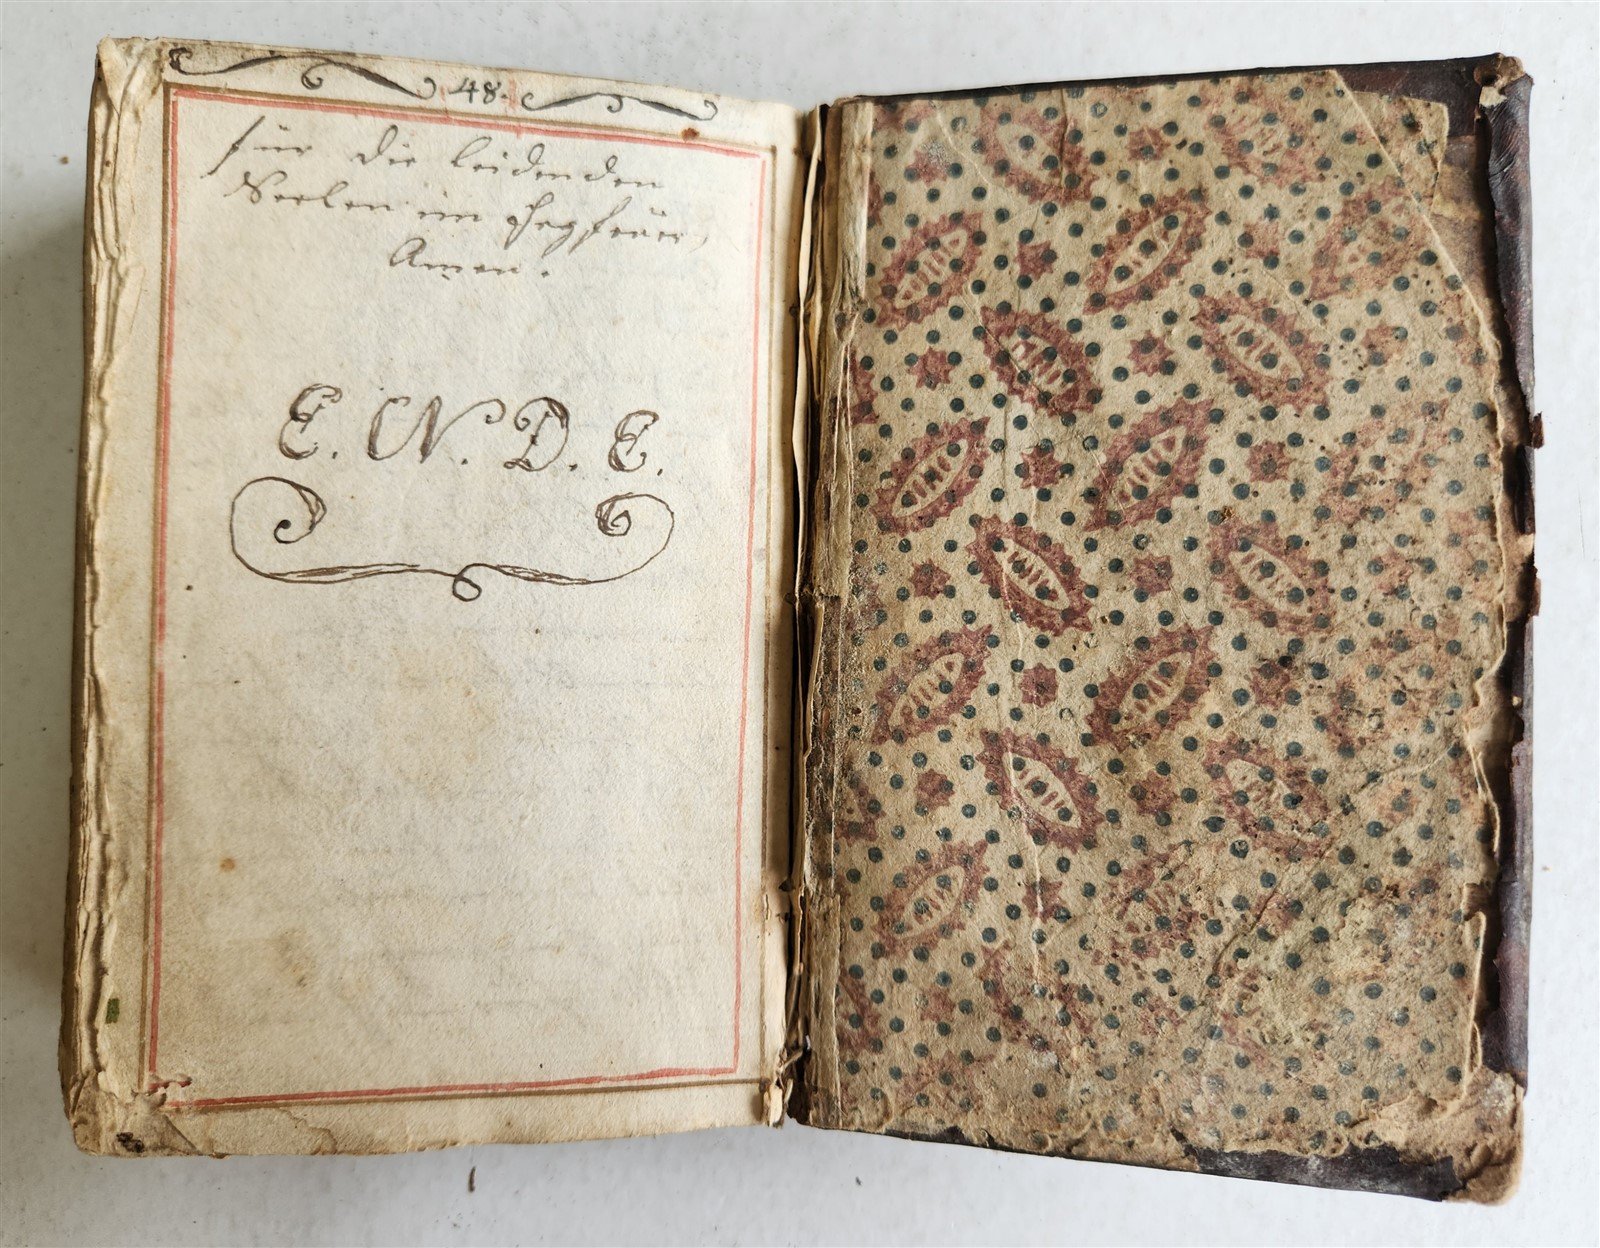 48.
für die leidenden
Seelen im Fegfeüer,
Amen.
E. N. D. E.